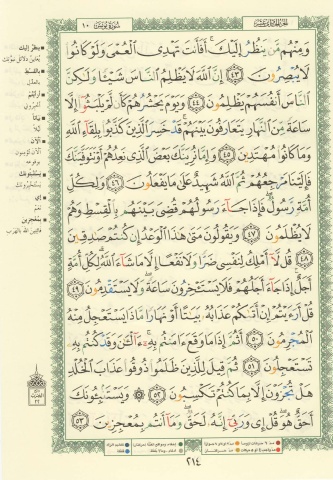 الجزء الحادي عشر
سورة يونس
١٠
وَمِنْهُم مَّن يَنظُرُ إِلَيْكَ ۚ أَفَأَنتَ تَهْدِى ٱلْعُمْىَ وَلَوْ كَانُوا۟
لَا يُبْصِرُونَ ٤٣ إِنَّ ٱللَّهَ لَا يَظْلِمُ ٱلنَّاسَ شَيْـًٔا وَلَـٰكِنَّ
ٱلنَّاسَ أَنفُسَهُمْ يَظْلِمُونَ ٤٤ وَيَوْمَ يَحْشُرُهُمْ كَأَن لَّمْ يَلْبَثُوٓا۟ إِلَّا
سَاعَةً مِّنَ ٱلنَّهَارِ يَتَعَارَفُونَ بَيْنَهُمْ ۚ قَدْ خَسِرَ ٱلَّذِينَ كَذَّبُوا۟ بِلِقَآءِ ٱللَّهِ
وَمَا كَانُوا۟ مُهْتَدِينَ ٤٥ وَإِمَّا نُرِيَنَّكَ بَعْضَ ٱلَّذِى نَعِدُهُمْ أَوْ نَتَوَفَّيَنَّكَ
فَإِلَيْنَا مَرْجِعُهُمْ ثُمَّ ٱللَّهُ شَهِيدٌ عَلَىٰ مَا يَفْعَلُونَ ٤٦ وَلِكُلِّ
أُمَّةٍ رَّسُولٌ ۖ فَإِذَا جَآءَ رَسُولُهُمْ قُضِىَ بَيْنَهُم بِٱلْقِسْطِ وَهُمْ
لَا يُظْلَمُونَ ٤٧ وَيَقُولُونَ مَتَىٰ هَـٰذَا ٱلْوَعْدُ إِن كُنتُمْ صَـٰدِقِينَ
٤٨ قُل لَّآ أَمْلِكُ لِنَفْسِى ضَرًّا وَلَا نَفْعًا إِلَّا مَا شَآءَ ٱللَّهُ ۗ لِكُلِّ أُمَّةٍ
أَجَلٌ ۚ إِذَا جَآءَ أَجَلُهُمْ فَلَا يَسْتَـْٔخِرُونَ سَاعَةً ۖ وَلَا يَسْتَقْدِمُونَ ٤٩
قُلْ أَرَءَيْتُمْ إِنْ أَتَىٰكُمْ عَذَابُهُۥ بَيَـٰتًا أَوْ نَهَارًا مَّاذَا يَسْتَعْجِلُ مِنْهُ
ٱلْمُجْرِمُونَ ٥٠ أَثُمَّ إِذَا مَا وَقَعَ ءَامَنتُم بِهِۦٓ ۚ ءَآلْـَٔـٰنَ وَقَدْ كُنتُم بِهِۦ
تَسْتَعْجِلُونَ ٥١ ثُمَّ قِيلَ لِلَّذِينَ ظَلَمُوا۟ ذُوقُوا۟ عَذَابَ ٱلْخُلْدِ
هَلْ تُجْزَوْنَ إِلَّا بِمَا كُنتُمْ تَكْسِبُونَ ٥٢ ۞ وَيَسْتَنۢبِـُٔونَكَ
أَحَقٌّ هُوَ ۖ قُلْ إِى وَرَبِّىٓ إِنَّهُۥ لَحَقٌّ ۖ وَمَآ أَنتُم بِمُعْجِزِينَ ٥٣
ينظر إليك
بالقسط
بالعدل
أرأيتم
أخبروني
بياتا
ليلا
يستنبئونك
إي
نعم
بمعجزين
٢١٤